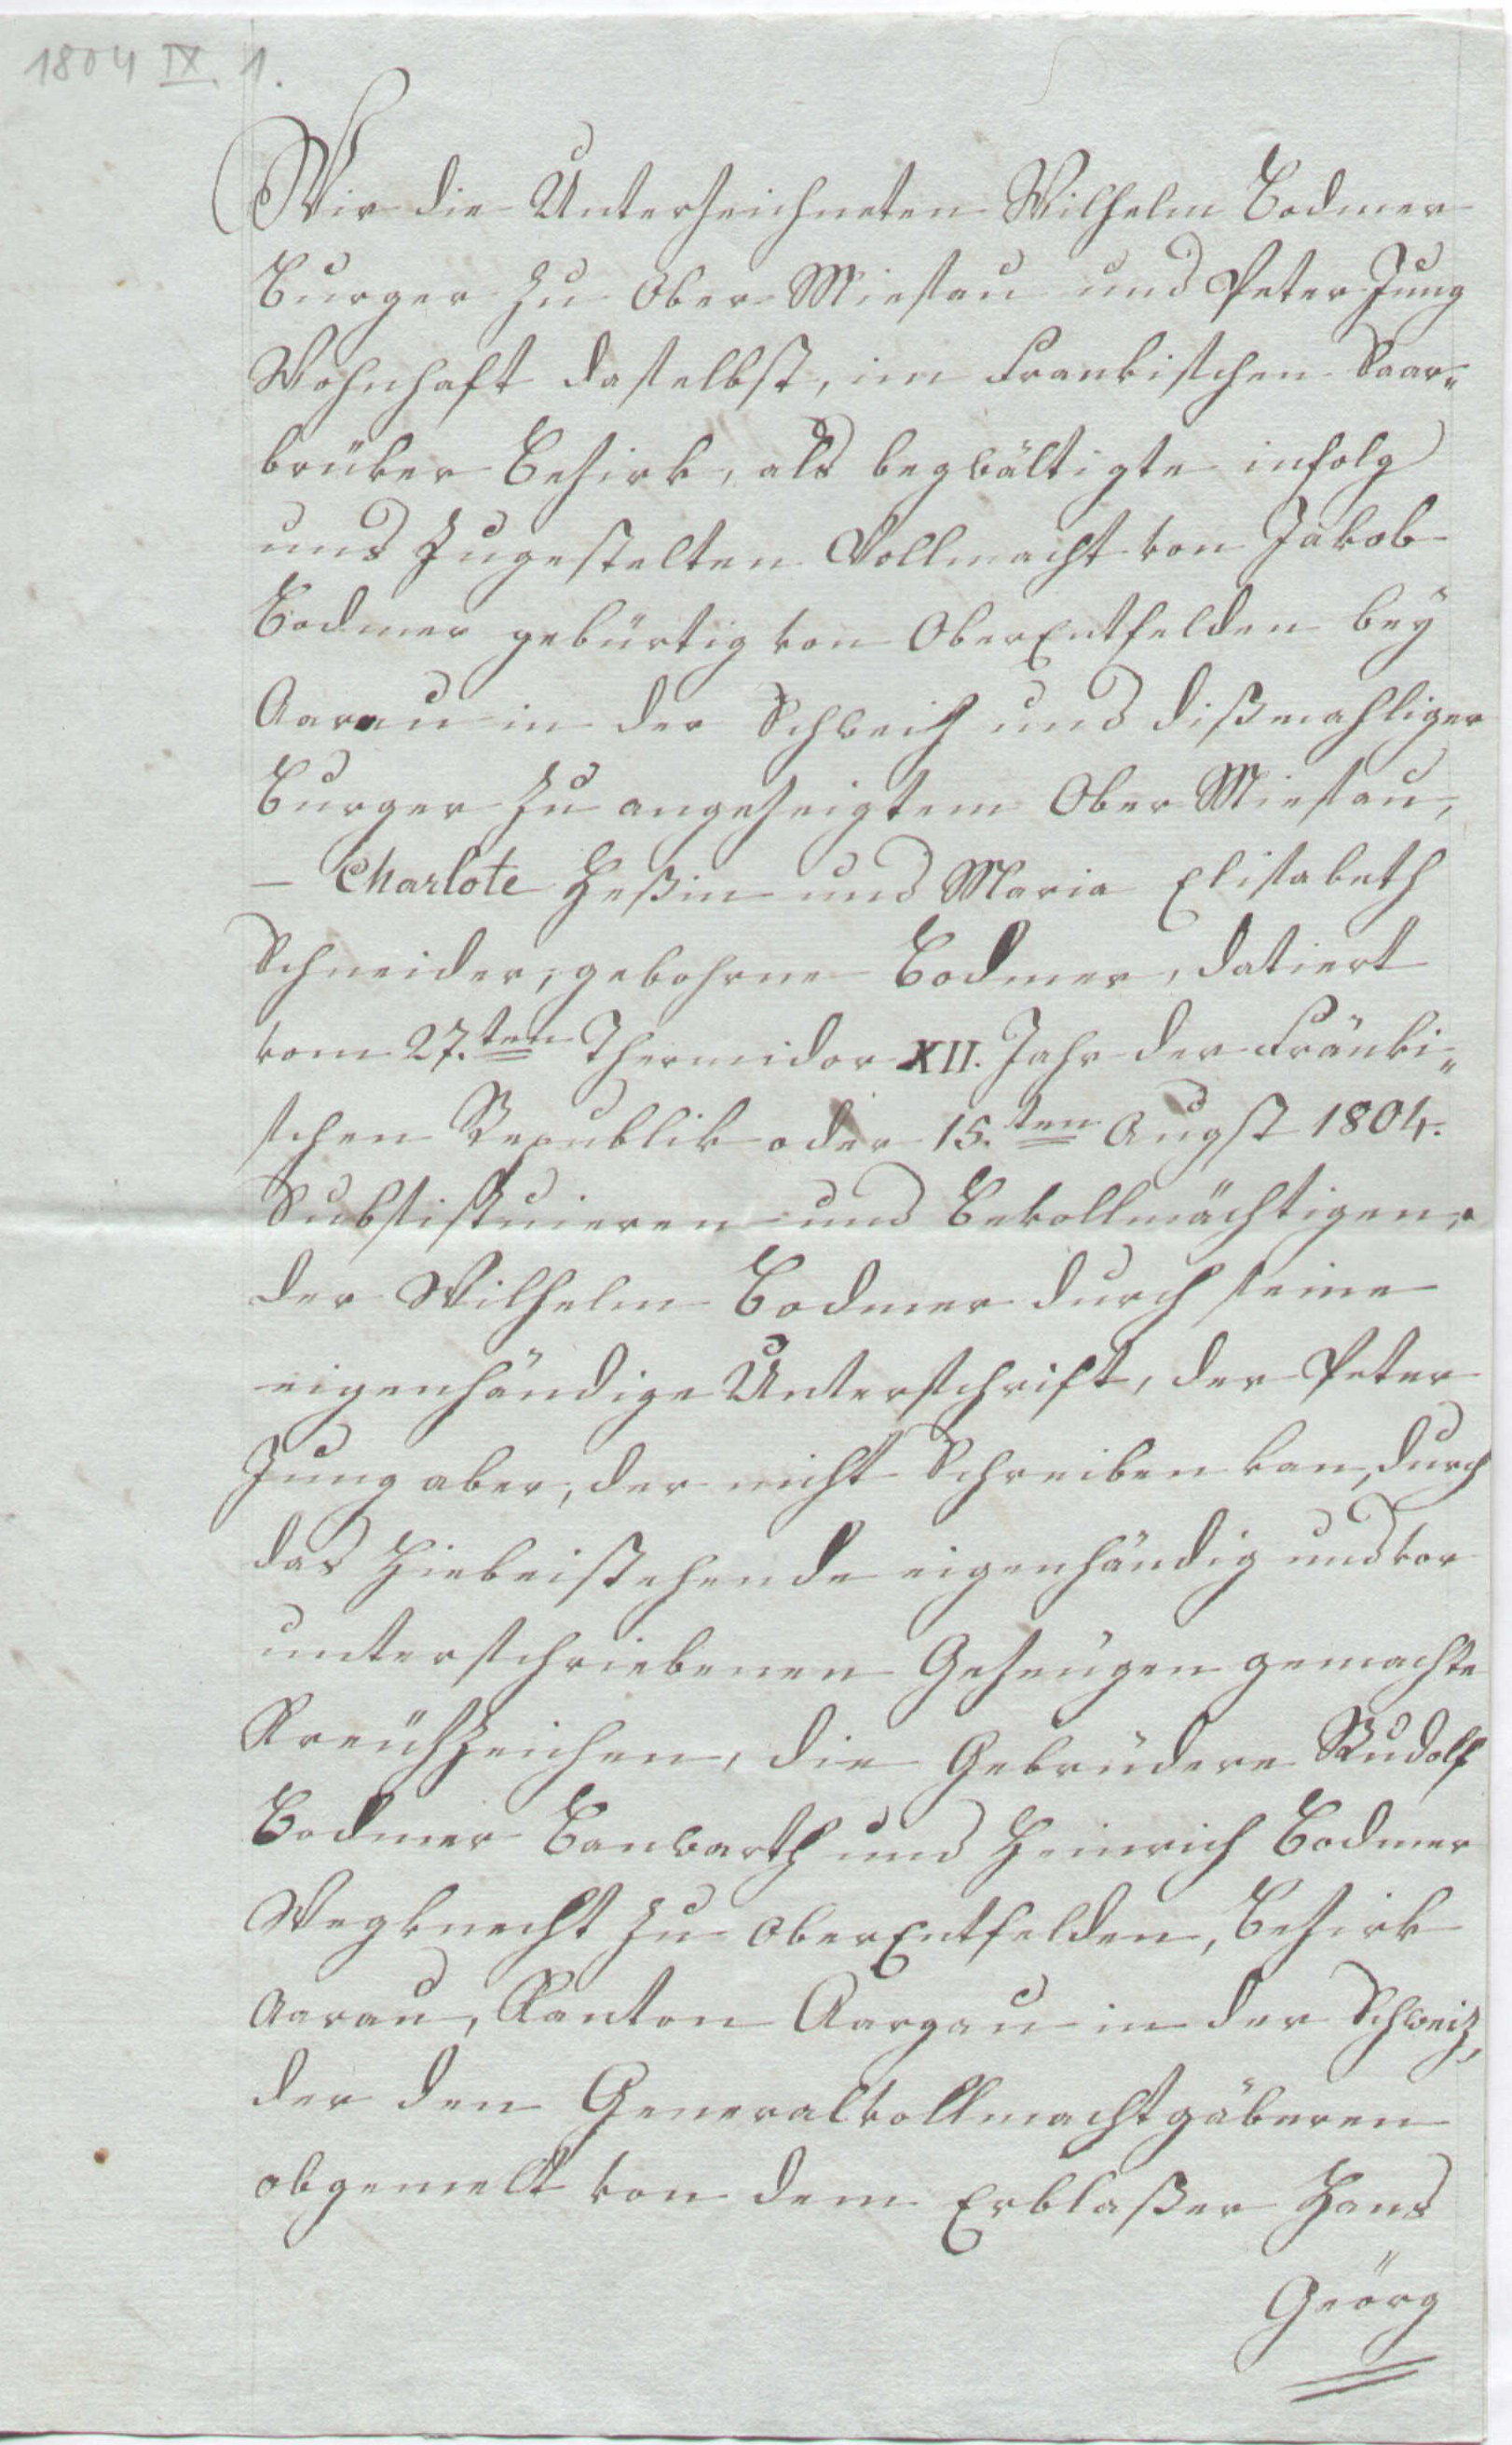 1804 IX. 1.
Wir die Unterzeichneten Wilhelm Bodmer
Burger zu Ober Miesau und Peter Jung
Wohnhaft daselbst, im Frankischen Saar„
brüker Bezirk, als begwältigte infolg
uns zugestelten Vollmacht von Jakob
Bodmer gebürtig von OberEntfelden bey
Aarau in der Schweiz und dißmahliger
Burger zu angezeigtem Ober Miesau,
– Charlote Heßin und Maria Elisabeth
Schneider, gebohrne Bodmer, datiert
vom 27.ten Thermidor XII. Jahr der Fränki„
schen Republik oder 15.ten Augst 1804.
Substituieren und Bevollmächtigen,
der Wilhelm Bodmer durch seine
eigenhändige Unterschrift, der Peter
Jung aber, der nicht Schreiben kan, durch
das Hiebeistehende eigenhändig und vor
unterschriebenen Gezeugen gemachte
Kreützzeichen, die Gebrüdere Rudolf
Bodmer Banwarth und Heinrich Bodmer
Wegknecht zu OberEntfelden, Bezirk
Aarau, Kanton Aargau in der Schweiz,
der den Generalvollmachtgäberen
obgemelt von dem Erblaßer Hans
Geörg